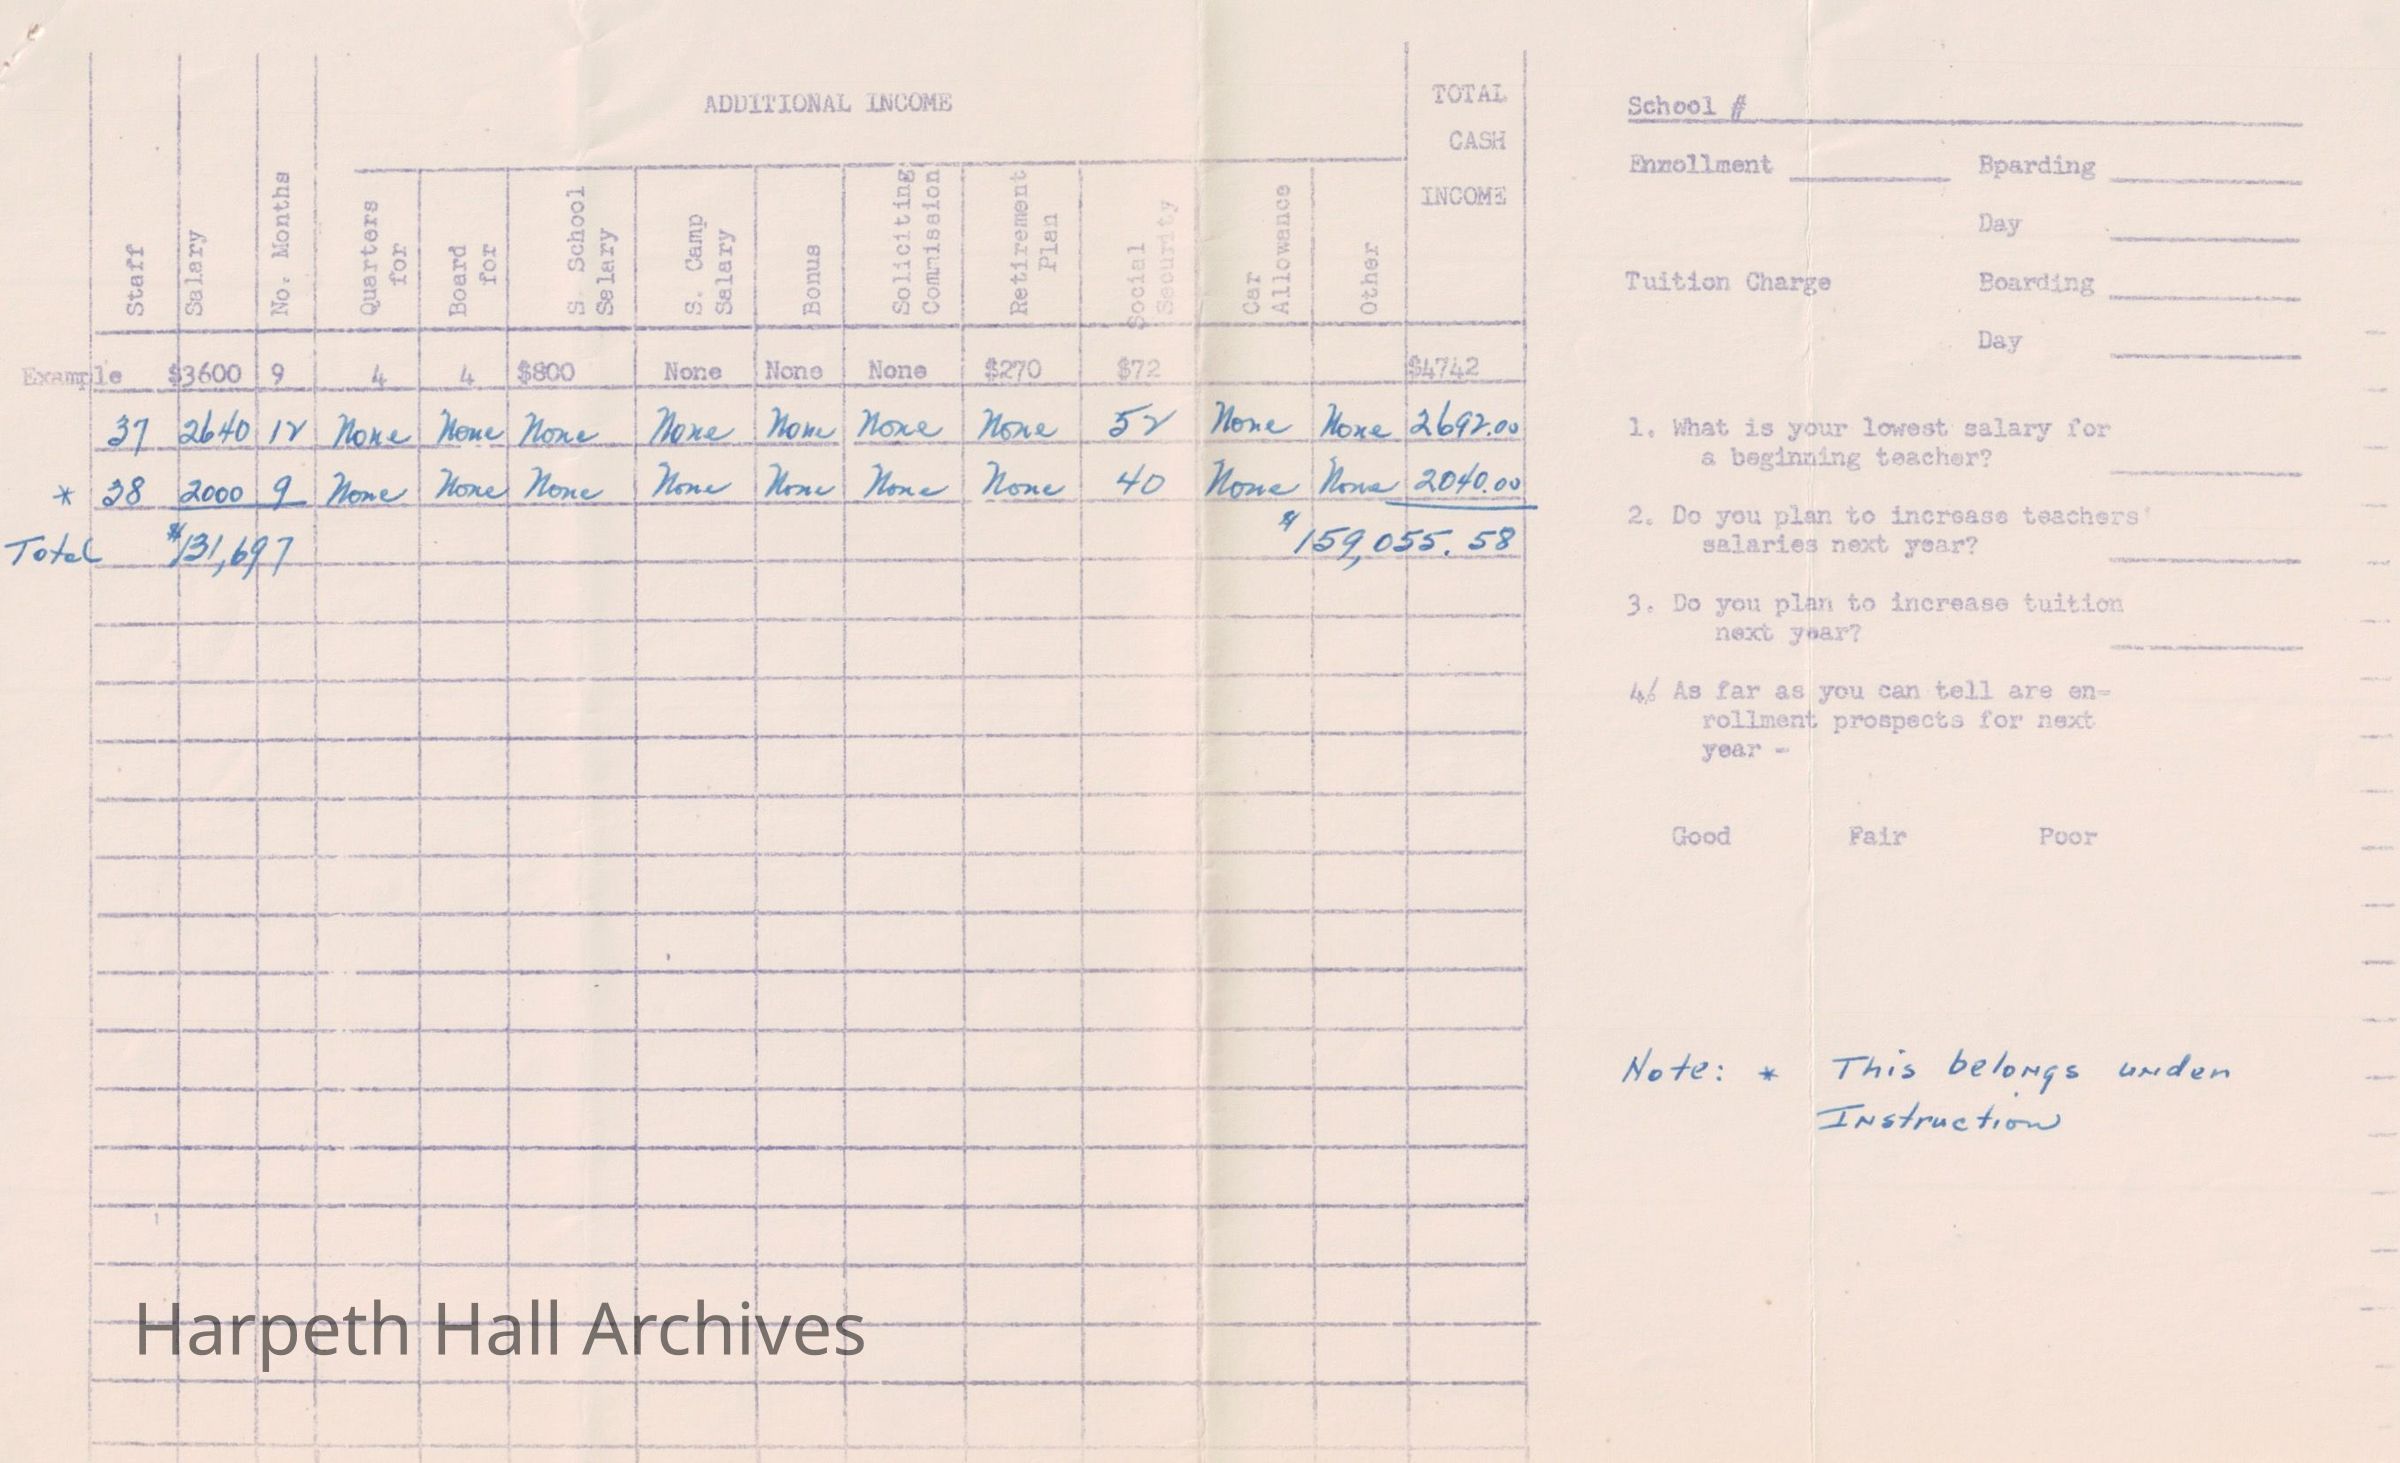 ADDITIONAL INCOME
TOTAL
CASH
INCOME
Staff
Salary
No. Months
Quarters
for
Board
for
S. School
Salary
S. Camp
Salary
Bonus
Soliciting
Commission
Retirement
Plan
Social
Security
Car
Allowance
Other
Example $3600 9 4 4 $800 None None None $270 $72 $4742
37 2640 12 None None None None None None None 52 None None 2692.00
* 38 2000 9 None None None None None None None 40 None None 2040.00
Total $131,697 $159,055.58
School #
Enrollment Bparding
Day
Tuition Charge Boarding
Day
1. What is your lowest salary for
a beginning teacher?
2. Do you plan to increase teachers'
salaries next year?
3. Do you plan to increase tuition
next year?
4. As far as you can tell are en-
rollment prospects for next
year -
Good Fair Poor
Note: * This belongs under
Instruction
Harpeth Hall Archives